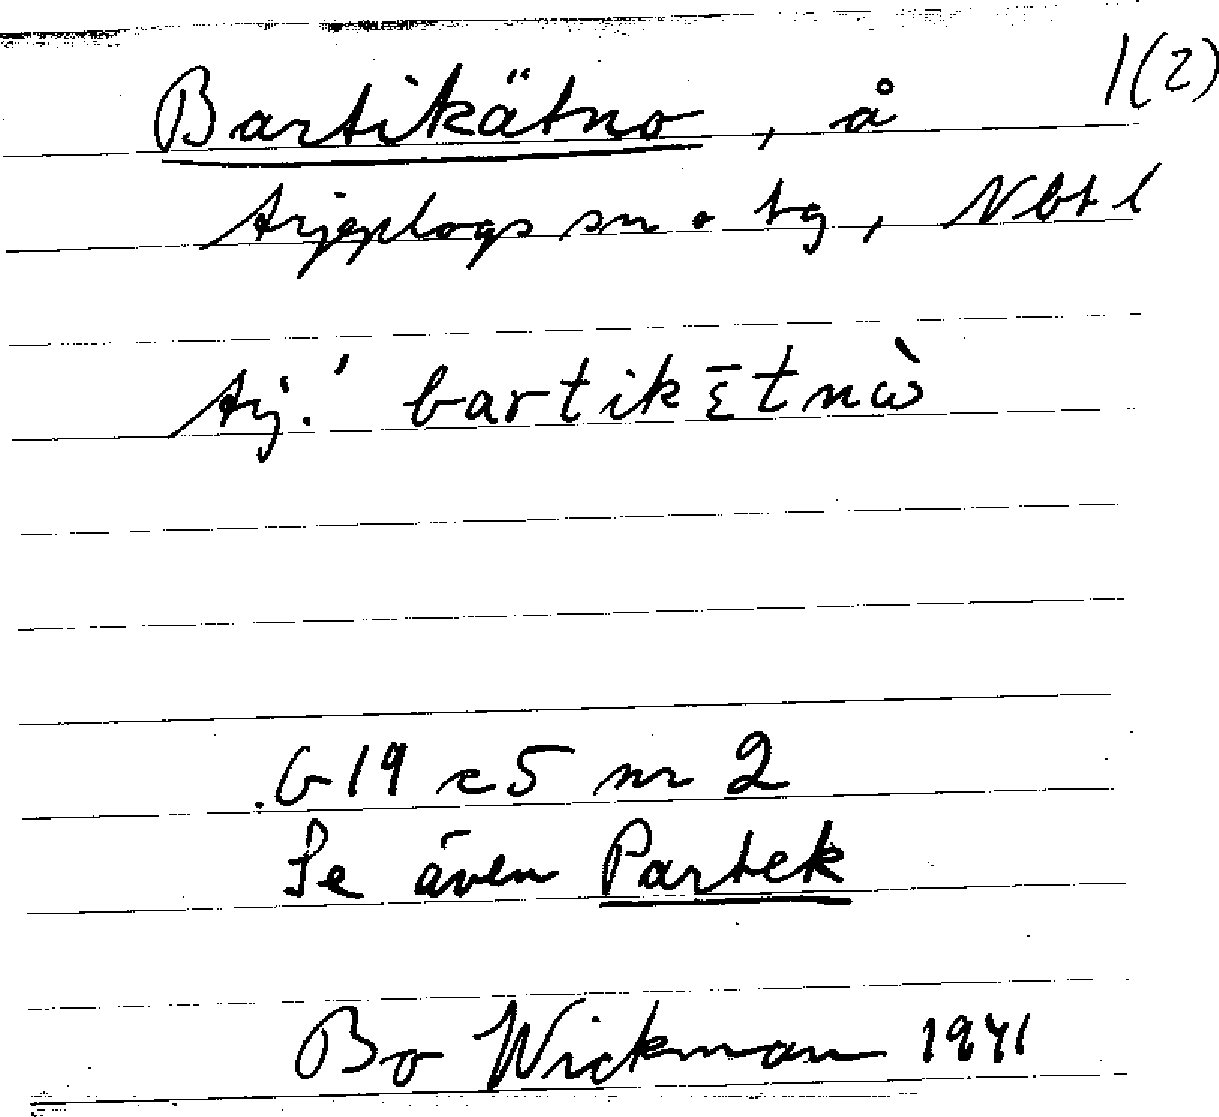 1(2)
Bartikätno, å
Arjeplogs sn o tg, Nbt l
Arj. ' bartikɛ̄tnὼ
G 19 c5 nr 2
Se även Partek
Bo Wickman 1941